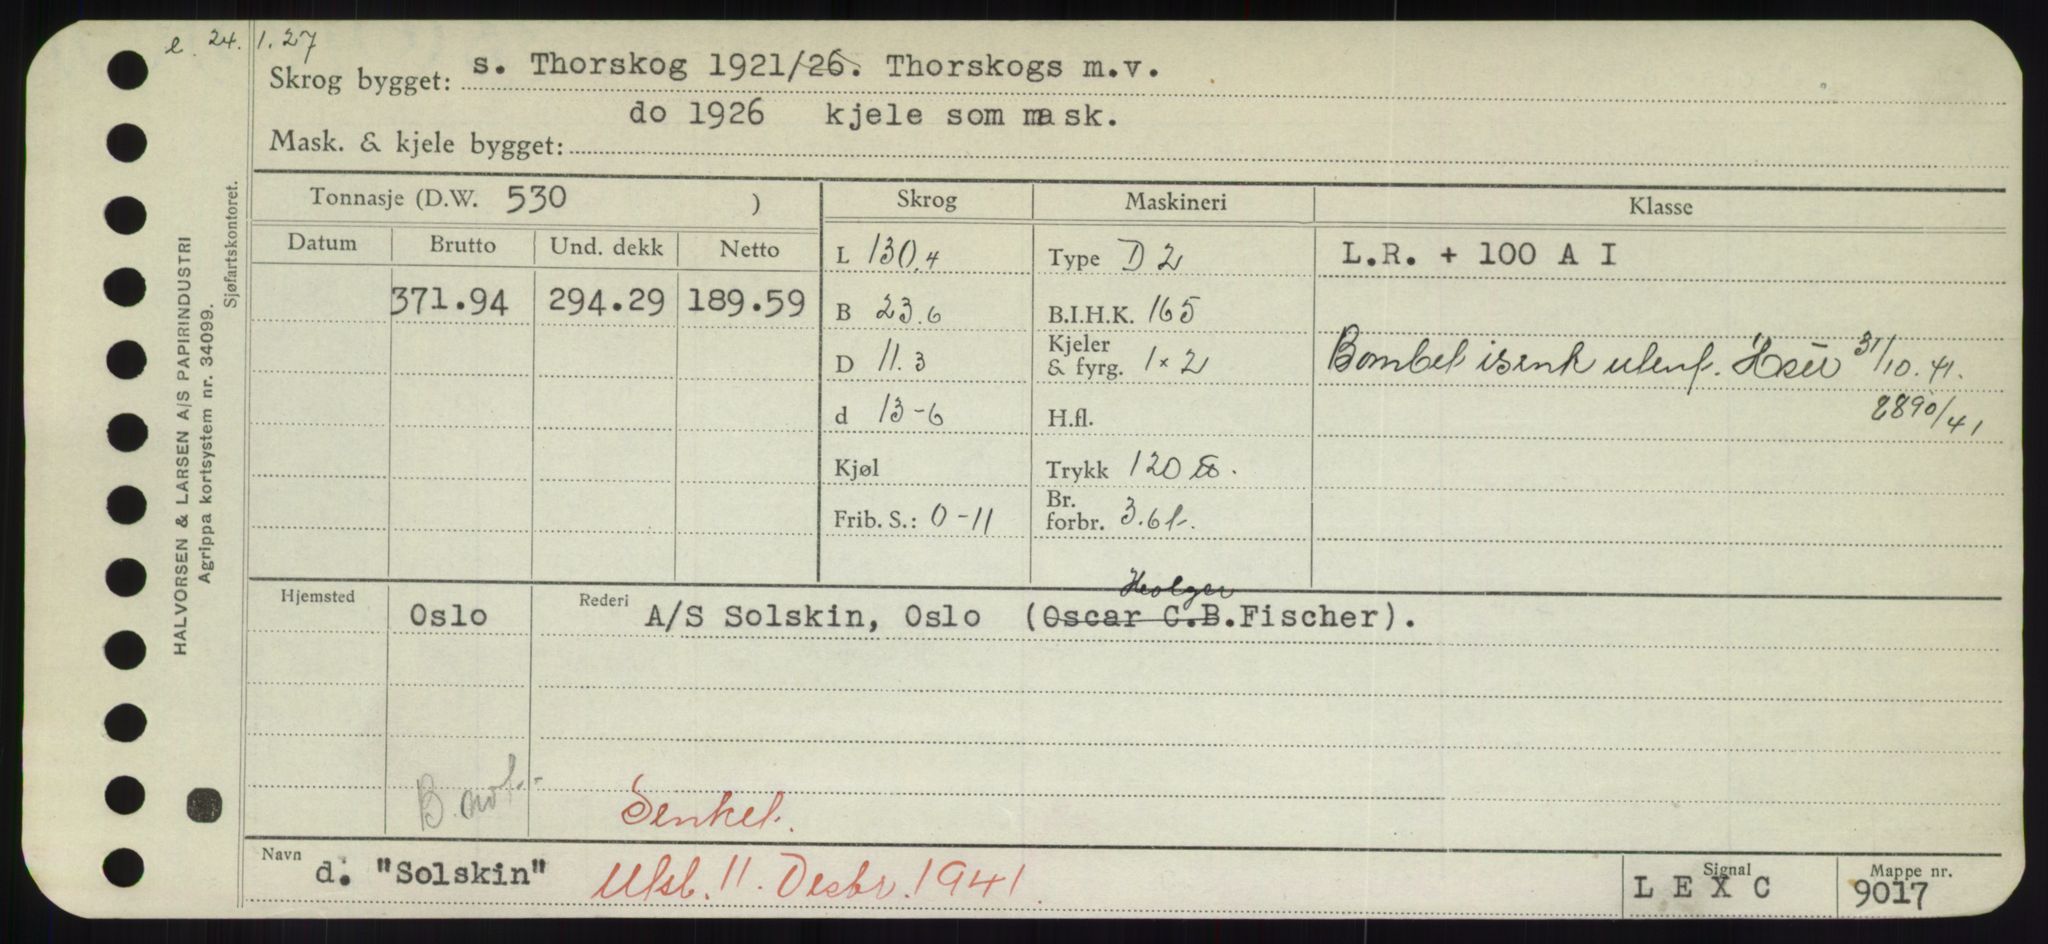 e. 24. 1. 27
Skrog bygget: s. Thorskog 1921/26. Thorskogs m.v.
do 1926 kjele som mask.
Mask. & kjele bygget:
HALVORSEN & LARSEN A/S PAPIRINDUSTRI
Agrippa kortsystem nr. 34099.
Sjøfartskontoret.
Tonnasje (D.W. 530 ) Skrog Maskineri Klasse
Datum Brutto Und. dekk Netto
L 130.4 Type D 2 L.R. + 100 A I
371.94 294.29 189.59
B 23.6 B.I.H.K. 165
D 11.3 Kjeler & fyrg. 1 x 2 Bombet isenk utenf. 31/10.41.
d 13-6 H.fl. 2890/41
Kjøl Trykk 120
Frib. S.: 0-11 Br. forbr. 3.6 t.
Holger
Hjemsted Oslo Rederi A/S Solskin, Oslo (Oscar C.B.Fischer).
B.
Senket.
Navn d. "Solskin" Utsl. 11. Desbr. 1941. Signal L E X C Mappe nr. 9017